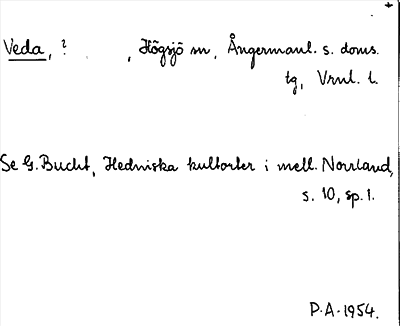 Veda, ? , Högsjö sn, Ångermanl. s. doms.
tg, Vrnl. l.
Se G. Bucht, Hedniska kultorter i mell. Norrland,
s. 10, sp. 1.
P.A. 1954.